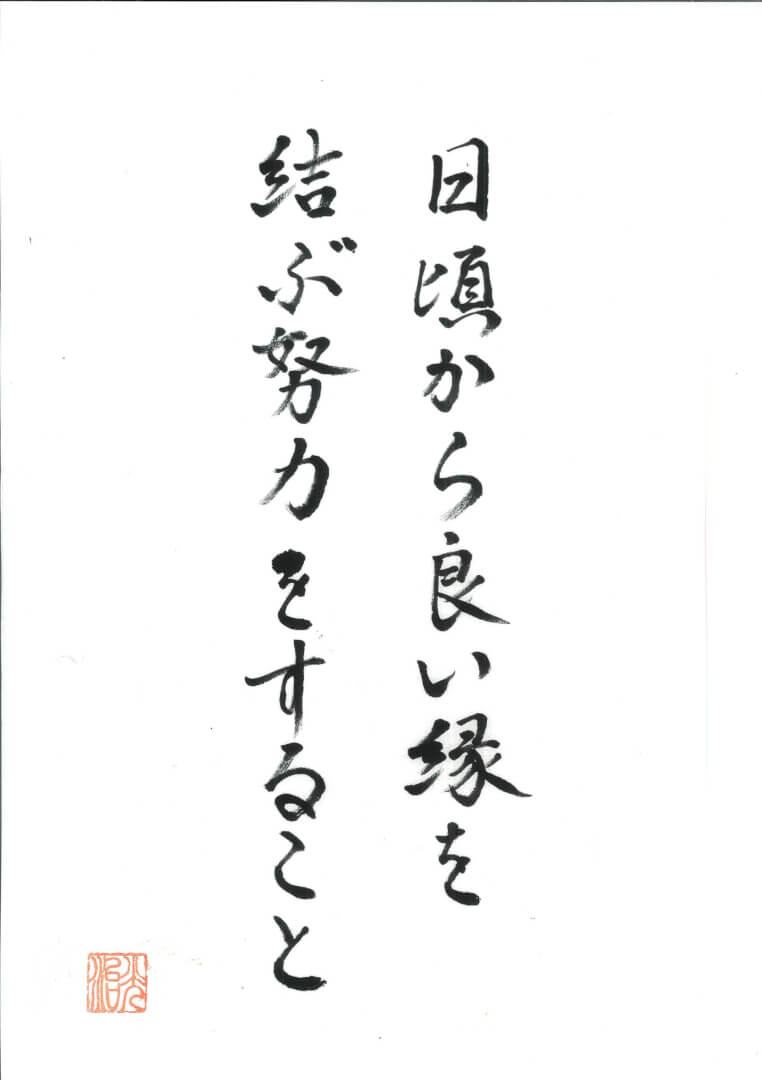 日頃から良い縁を
結ぶ努力をすること